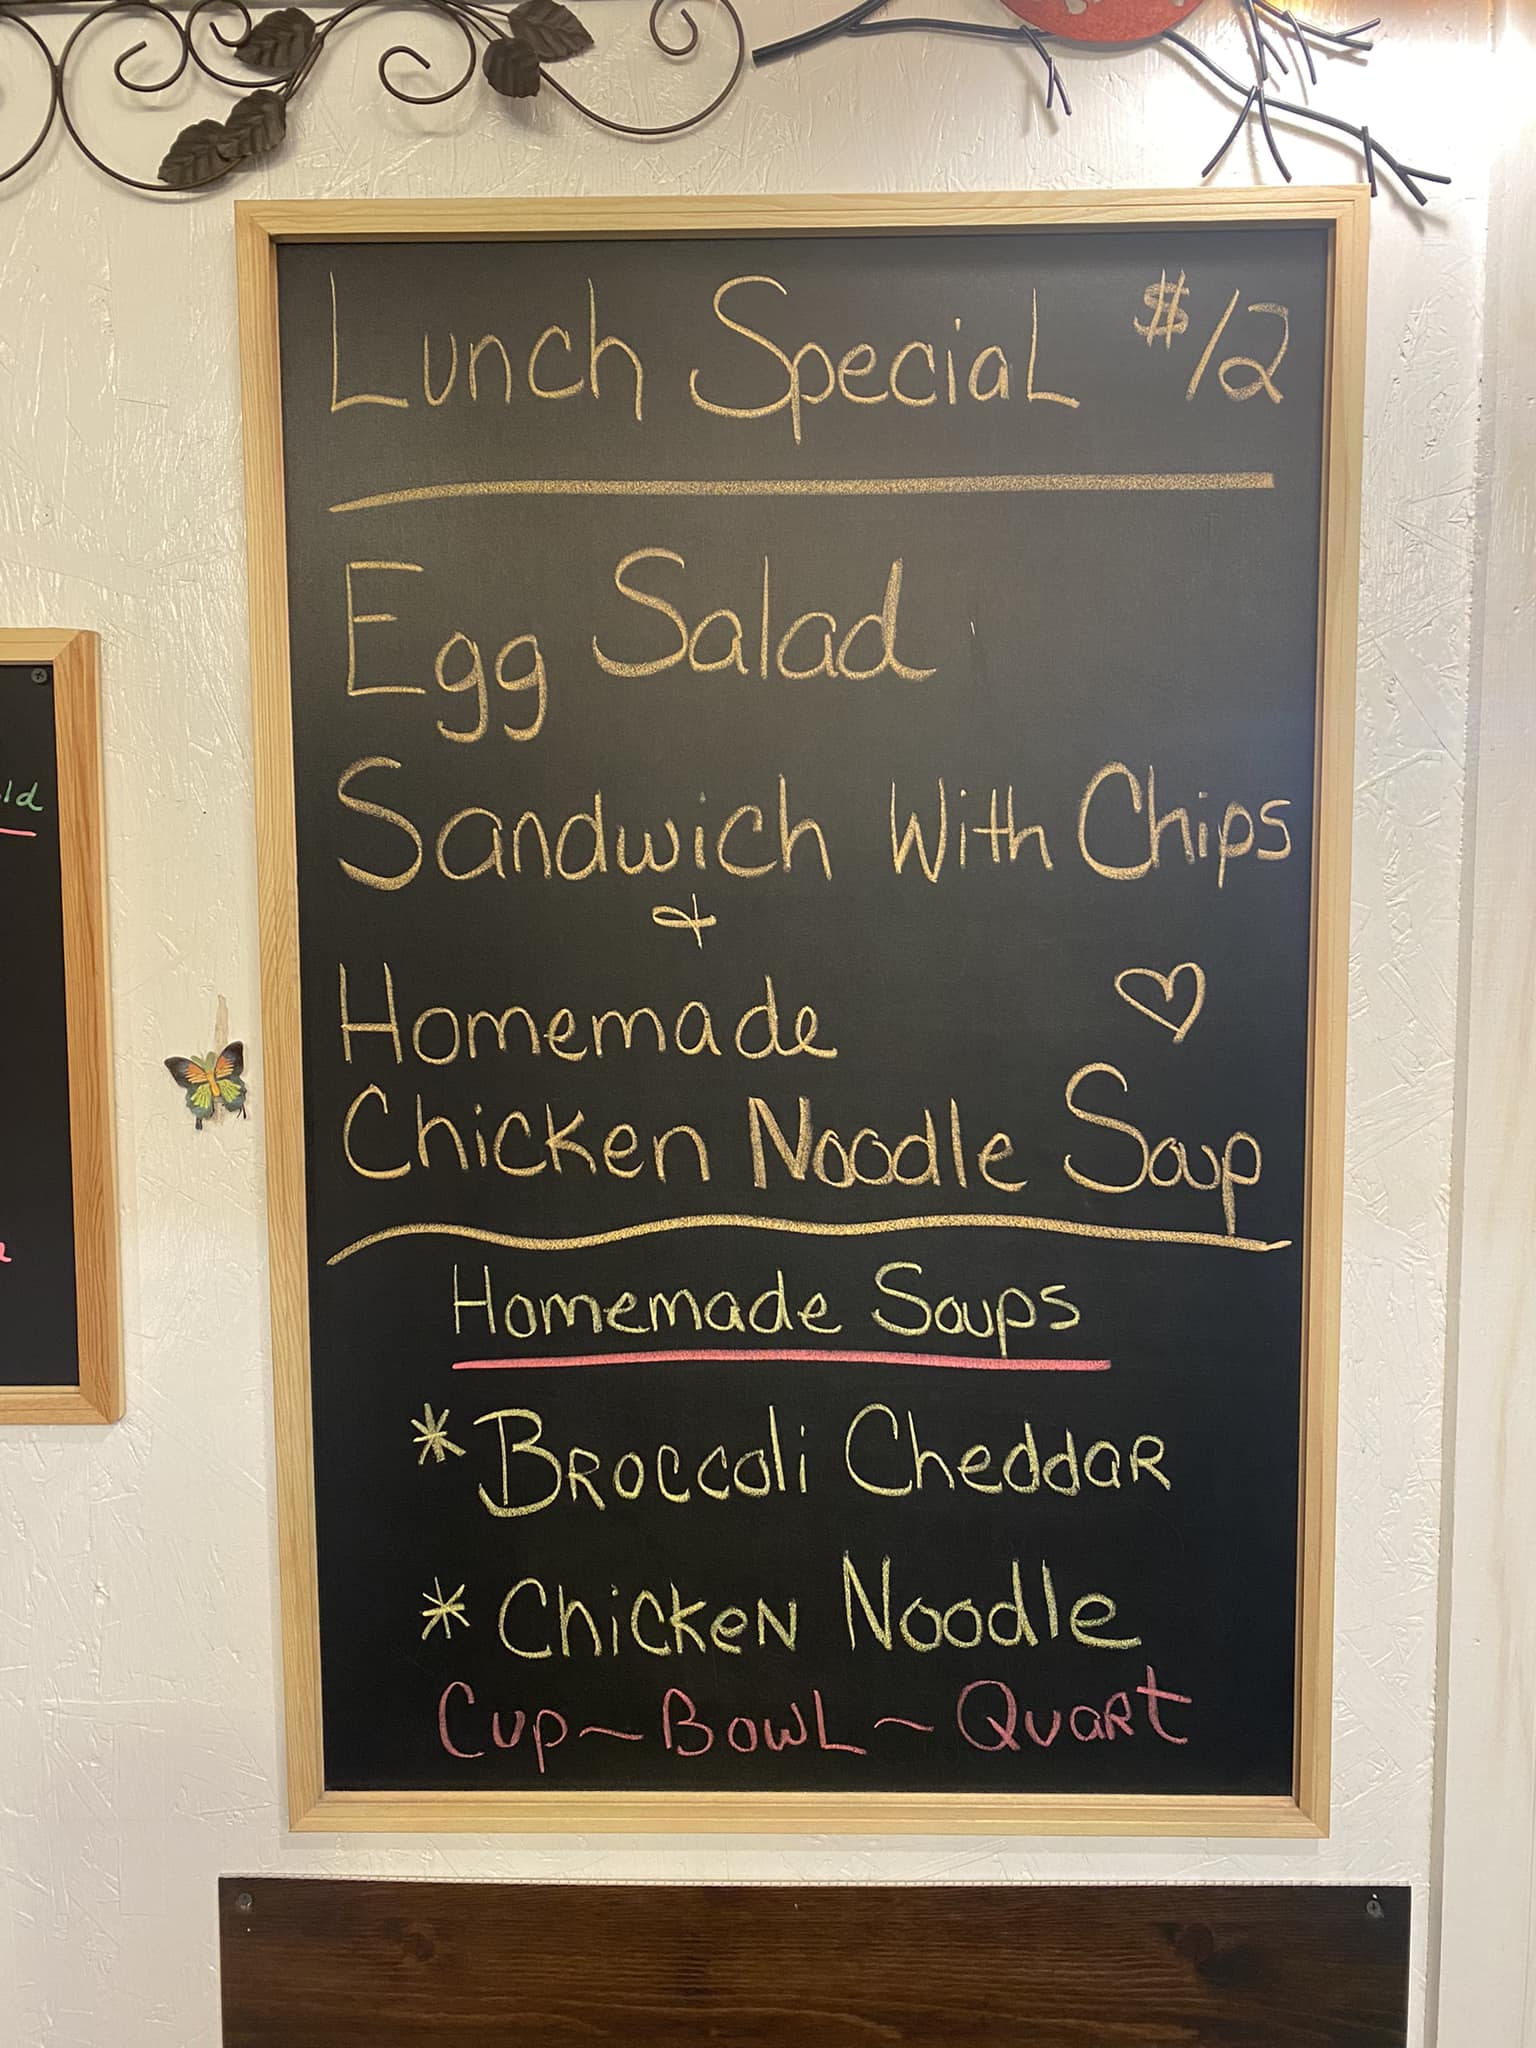 Lunch Special $12
Egg Salad
Sandwich With Chips
&
Homemade
Chicken Noodle Soup
Homemade Soups
* Broccoli Cheddar
* Chicken Noodle
Cup ~ Bowl ~ Quart